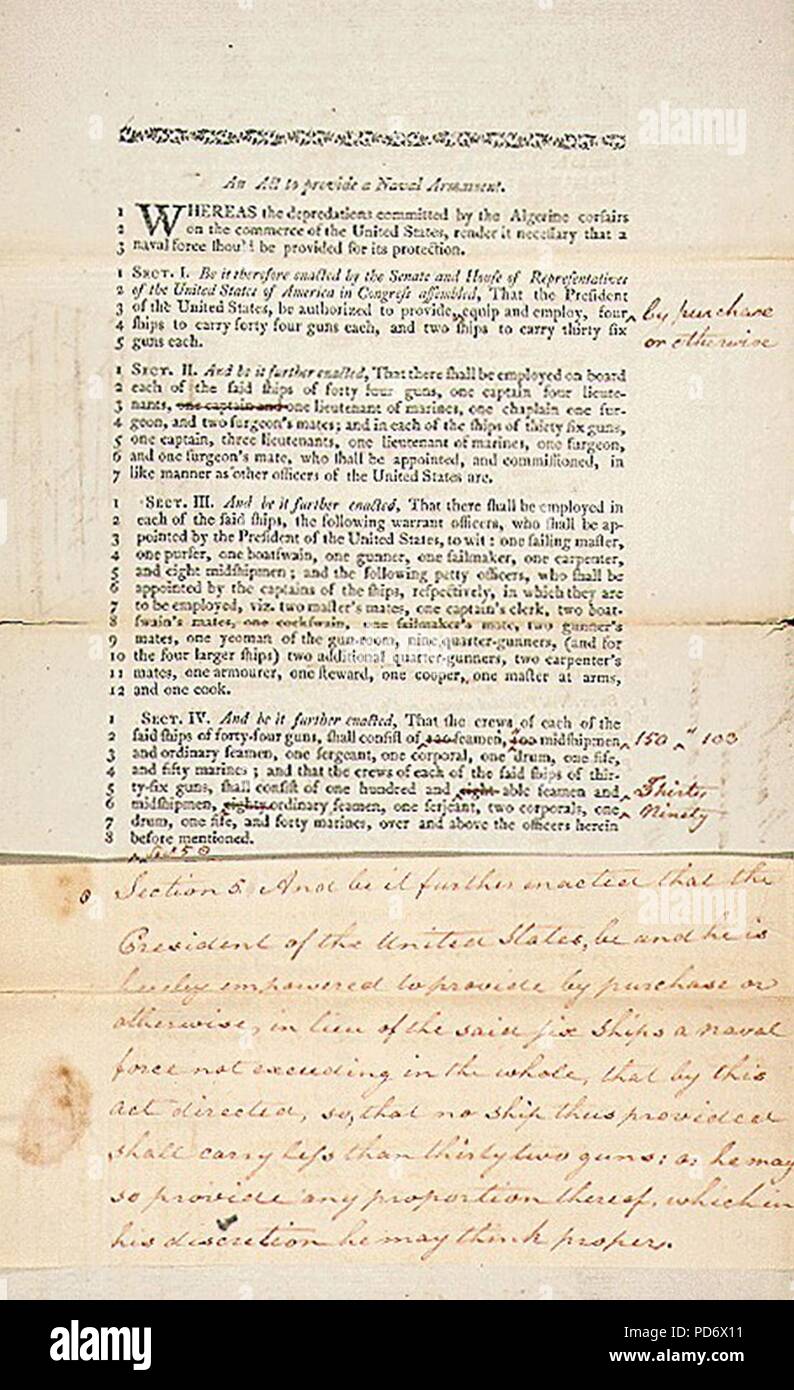 An Act to provide a Naval Armament.
1 WHEREAS the depredations committed by the Algerine corsairs
2 on the commerce of the United States, render it necessary that a
3 naval force should be provided for its protection.
1 SECT. I. Be it therefore enacted by the Senate and House of Representatives
2 of the United States of America in Congress assembled, That the President
3 of the United States, be authorized to provide, equip and employ, four by purchase
4 ships to carry forty four guns each, and two ships to carry thirty six or otherwise
5 guns each.
1 SECT. II. And be it further enacted, That there shall be employed on board
2 each of the said ships of forty four guns, one captain four lieute-
3 nants, one captain and one lieutenant of marines, one chaplain one sur-
4 geon, and two surgeon's mates; and in each of the ships of thirty six guns,
5 one captain, three lieutenants, one lieutenant of marines, one surgeon,
6 and one surgeon's mate, who shall be appointed, and commissioned, in
7 like manner as other officers of the United States are.
1 SECT. III. And be it further enacted, That there shall be employed in
2 each of the said ships, the following warrant officers, who shall be ap-
3 pointed by the President of the United States, to wit: one sailing master,
4 one purser, one boatswain, one gunner, one sailmaker, one carpenter,
5 and eight midshipmen; and the following petty officers, who shall be
6 appointed by the captains of the ships, respectively, in which they are
7 to be employed, viz. two master's mates, one captain's clerk, two boat-
8 swain's mates, one cockswain, one sailmaker's mate, two gunner's
9 mates, one yeoman of the gun-room, nine quarter-gunners, (and for
10 the four larger ships) two additional quarter-gunners, two carpenter's
11 mates, one armourer, one steward, one cooper, one master at arms,
12 and one cook.
1 SECT. IV. And be it further enacted, That the crews of each of the
2 said ships of forty-four guns, shall consist of seamen, midshipmen 150 " 103
3 and ordinary seamen, one sergeant, one corporal, one drum, one fife,
4 and fifty marines; and that the crews of each of the said ships of thir-
5 ty-six guns, shall consist of one hundred and eight able seamen and Thirty
6 midshipmen, eighty ordinary seamen, one serjeant, two corporals, one Ninety
7 drum, one fife, and forty marines, over and above the officers herein
8 before mentioned.
Section 5 And be it further enacted that the
President of the United States, be and he is
hereby empowered to provide by purchase or
otherwise, in lieu of the said six ships a naval
force not exceeding in the whole, that by this
act directed, so, that no ship thus provided
shall carry less than thirty two guns: or he may
so provide any proportion thereof, which in
his discretion he may think proper.
alamy
alamy
alamy
Image ID: PD6X11
www.alamy.com